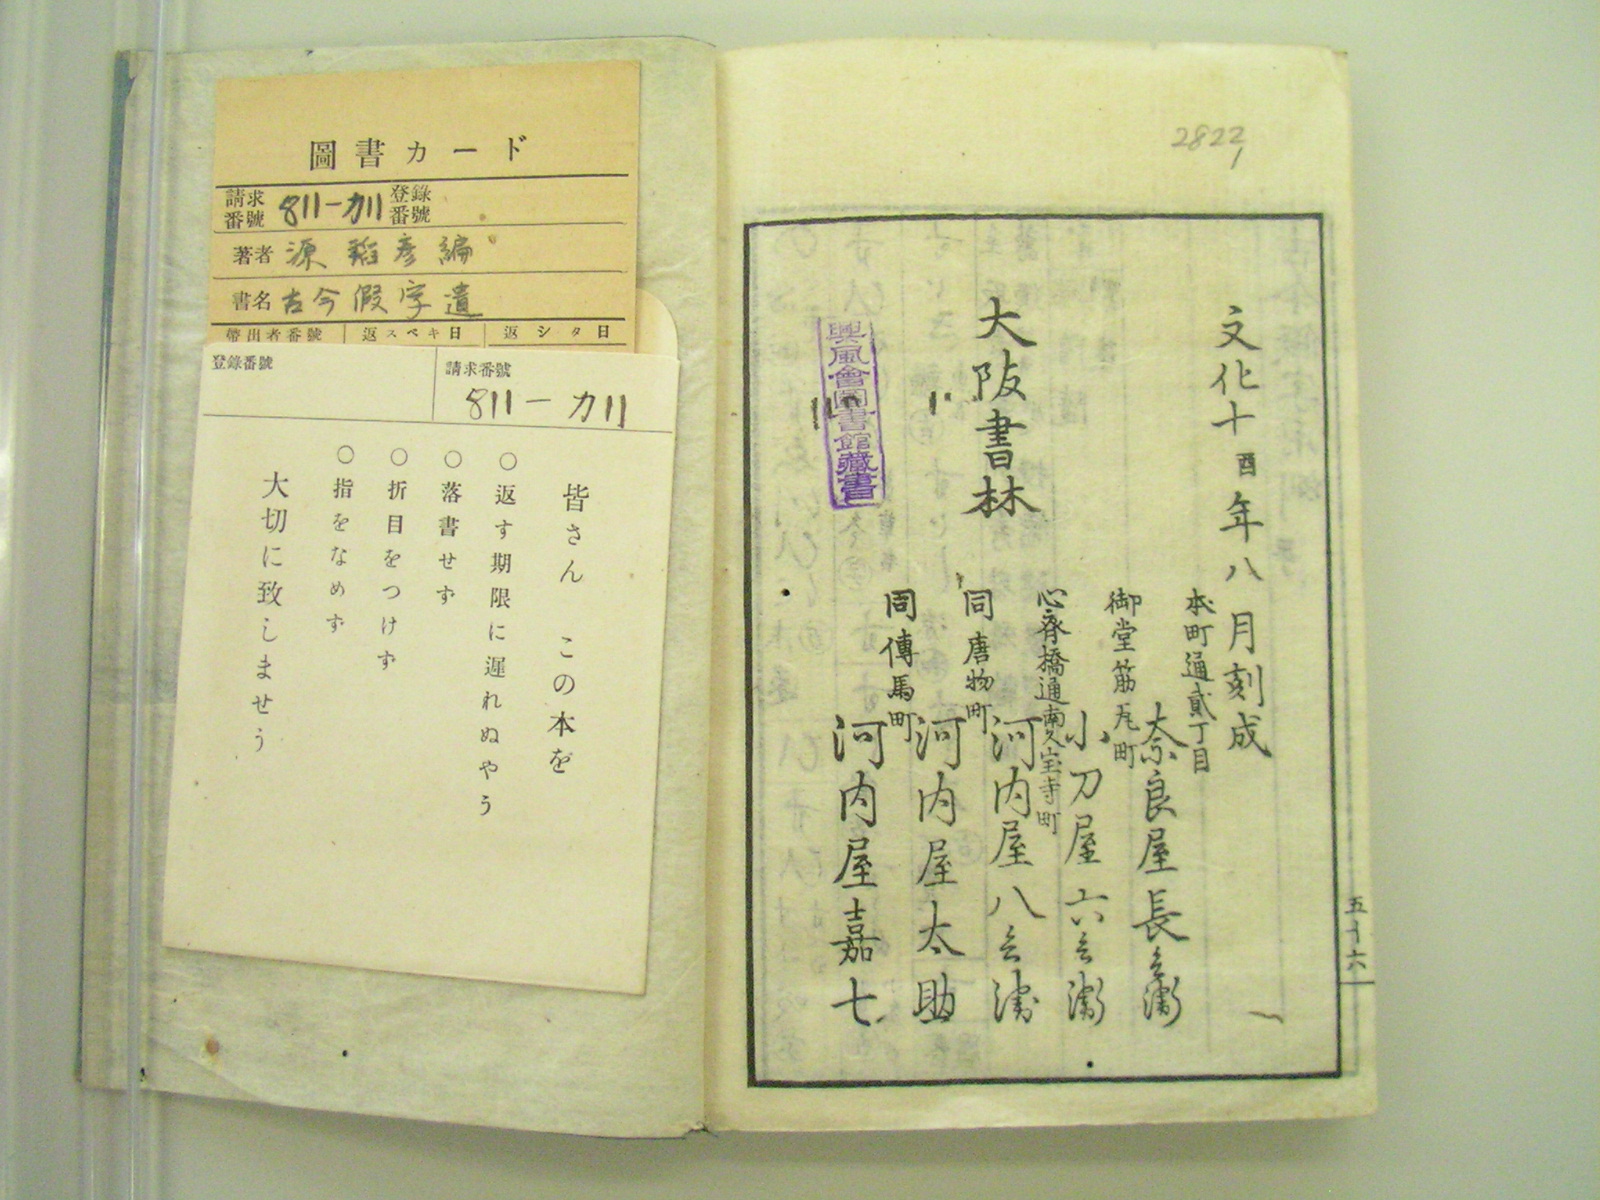 圖書カード
請求番號 811-カ11 登錄番號
著者 源稻彥編
書名 古今假字遣
帶出者番號 返スベキ日 返シタ日
登錄番號
請求番號
811-カ11
皆さん この本を
○返す期限に遲れぬやう
○落書せず
○折目をつけず
○指をなめず
大切に致しませう
2822
1
文化十酉年八月刻成
大阪書林
本町通貳丁目
奈良屋長兵衛
御堂筋瓦町
小刀屋六兵衛
心斎橋通南久宝寺町
河内屋八兵衛
同唐物町
河内屋太助
同傳馬町
河内屋嘉七
興風會圖書館藏書
五十六